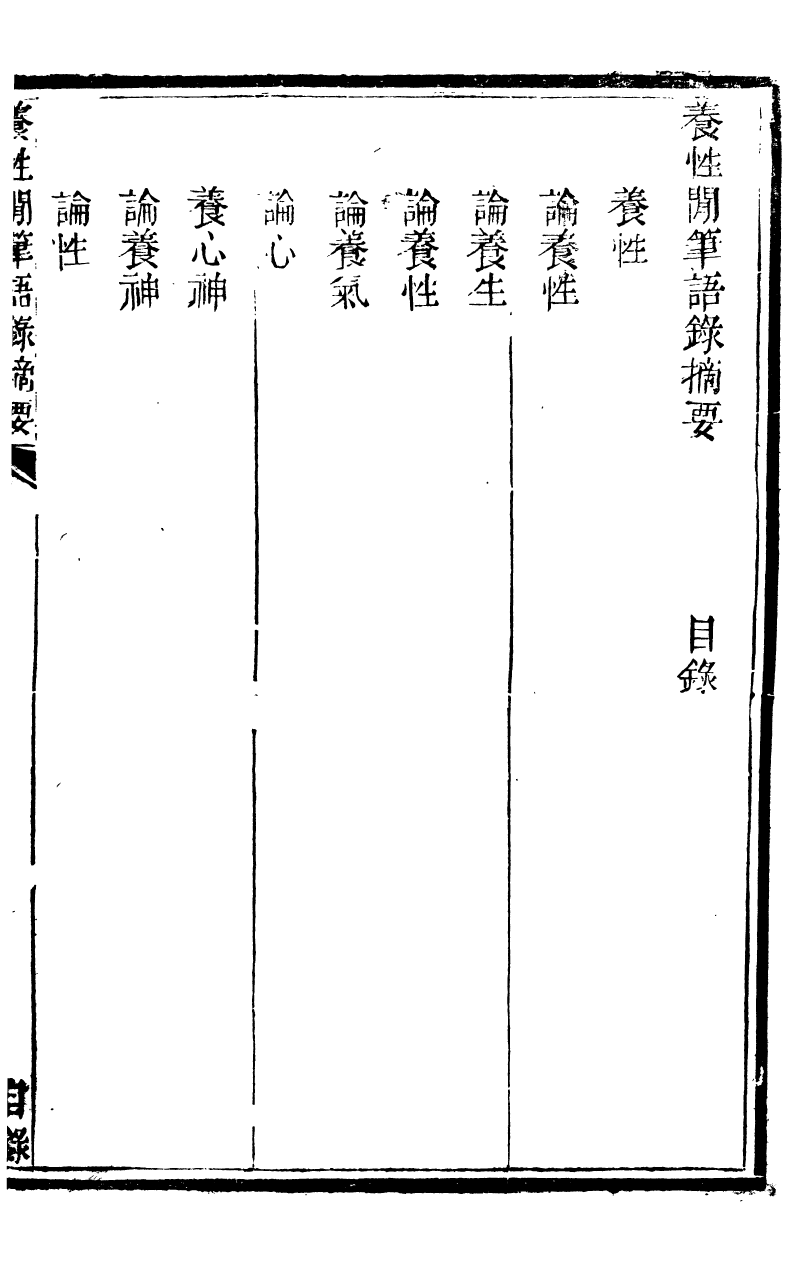 養性閒筆語錄摘要 目錄
養性
論養性
論養生
論養性
論養氣
論心
養心神
論養神
論性
養性閒筆語錄摘要 目錄